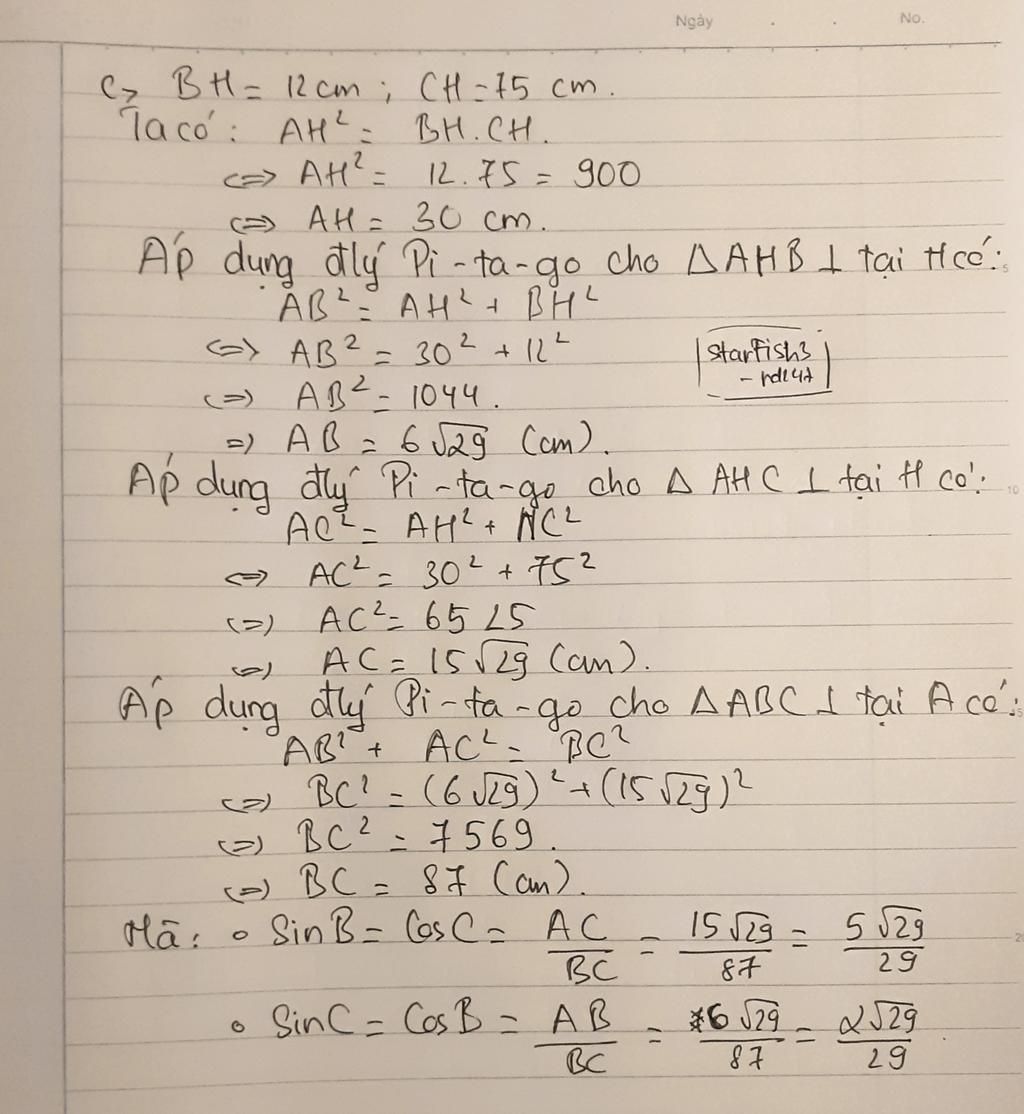 Ngày . . No.
c> BH = 12 cm ; CH = 75 cm .
Ta có : AH² = BH . CH .
<=> AH² = 12 . 75 = 900
<=> AH = 30 cm .
Áp dụng đlý Pi-ta-go cho △AHB ⊥ tại H có :
AB² = AH² + BH²
<=> AB² = 30² + 12²
<=> AB² = 1044 .
=> AB = 6√29 (cm) .
starFish3
Áp dụng đlý Pi-ta-go cho △ AHC ⊥ tại H có :
AC² = AH² + HC²
<=> AC² = 30² + 75²
<=> AC² = 6525
<=> AC = 15√29 (cm) .
Áp dụng đlý Pi-ta-go cho △ABC ⊥ tại A có :
AB² + AC² = BC²
<=> BC² = (6√29)² + (15√29)²
<=> BC² = 7569 .
<=> BC = 87 (cm) .
Mà : o SinB = CosC = AC/BC = 15√29/87 = 5√29/29
o SinC = CosB = AB/BC = 6√29/87 = 2√29/29